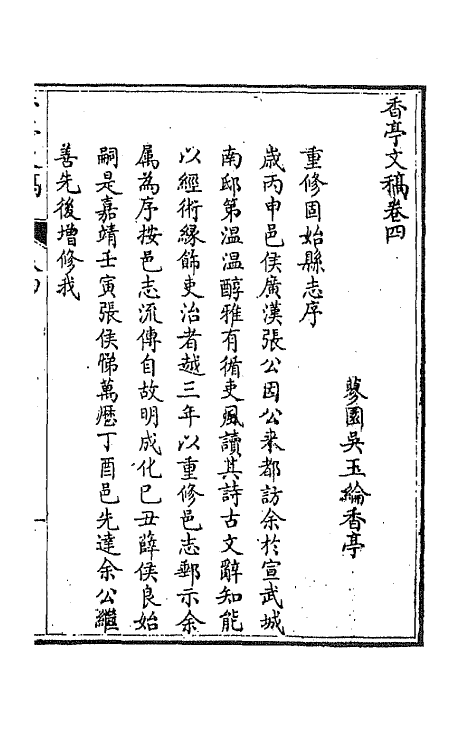 香亭文稿卷四
蓼園吳玉綸香亭
重修固始縣志序
歲丙申邑侯廣漢張公因公來都訪余於宣武城
南邸第溫溫醇雅有循吏風讀其詩古文辭知能
以經術緣飾吏治者越三年以重修邑志郵示余
属為序按邑志流傳自故明成化己丑薛侯良始
嗣是嘉靖壬寅張侯悌萬厯丁酉邑先達余公繼
善先後增修我